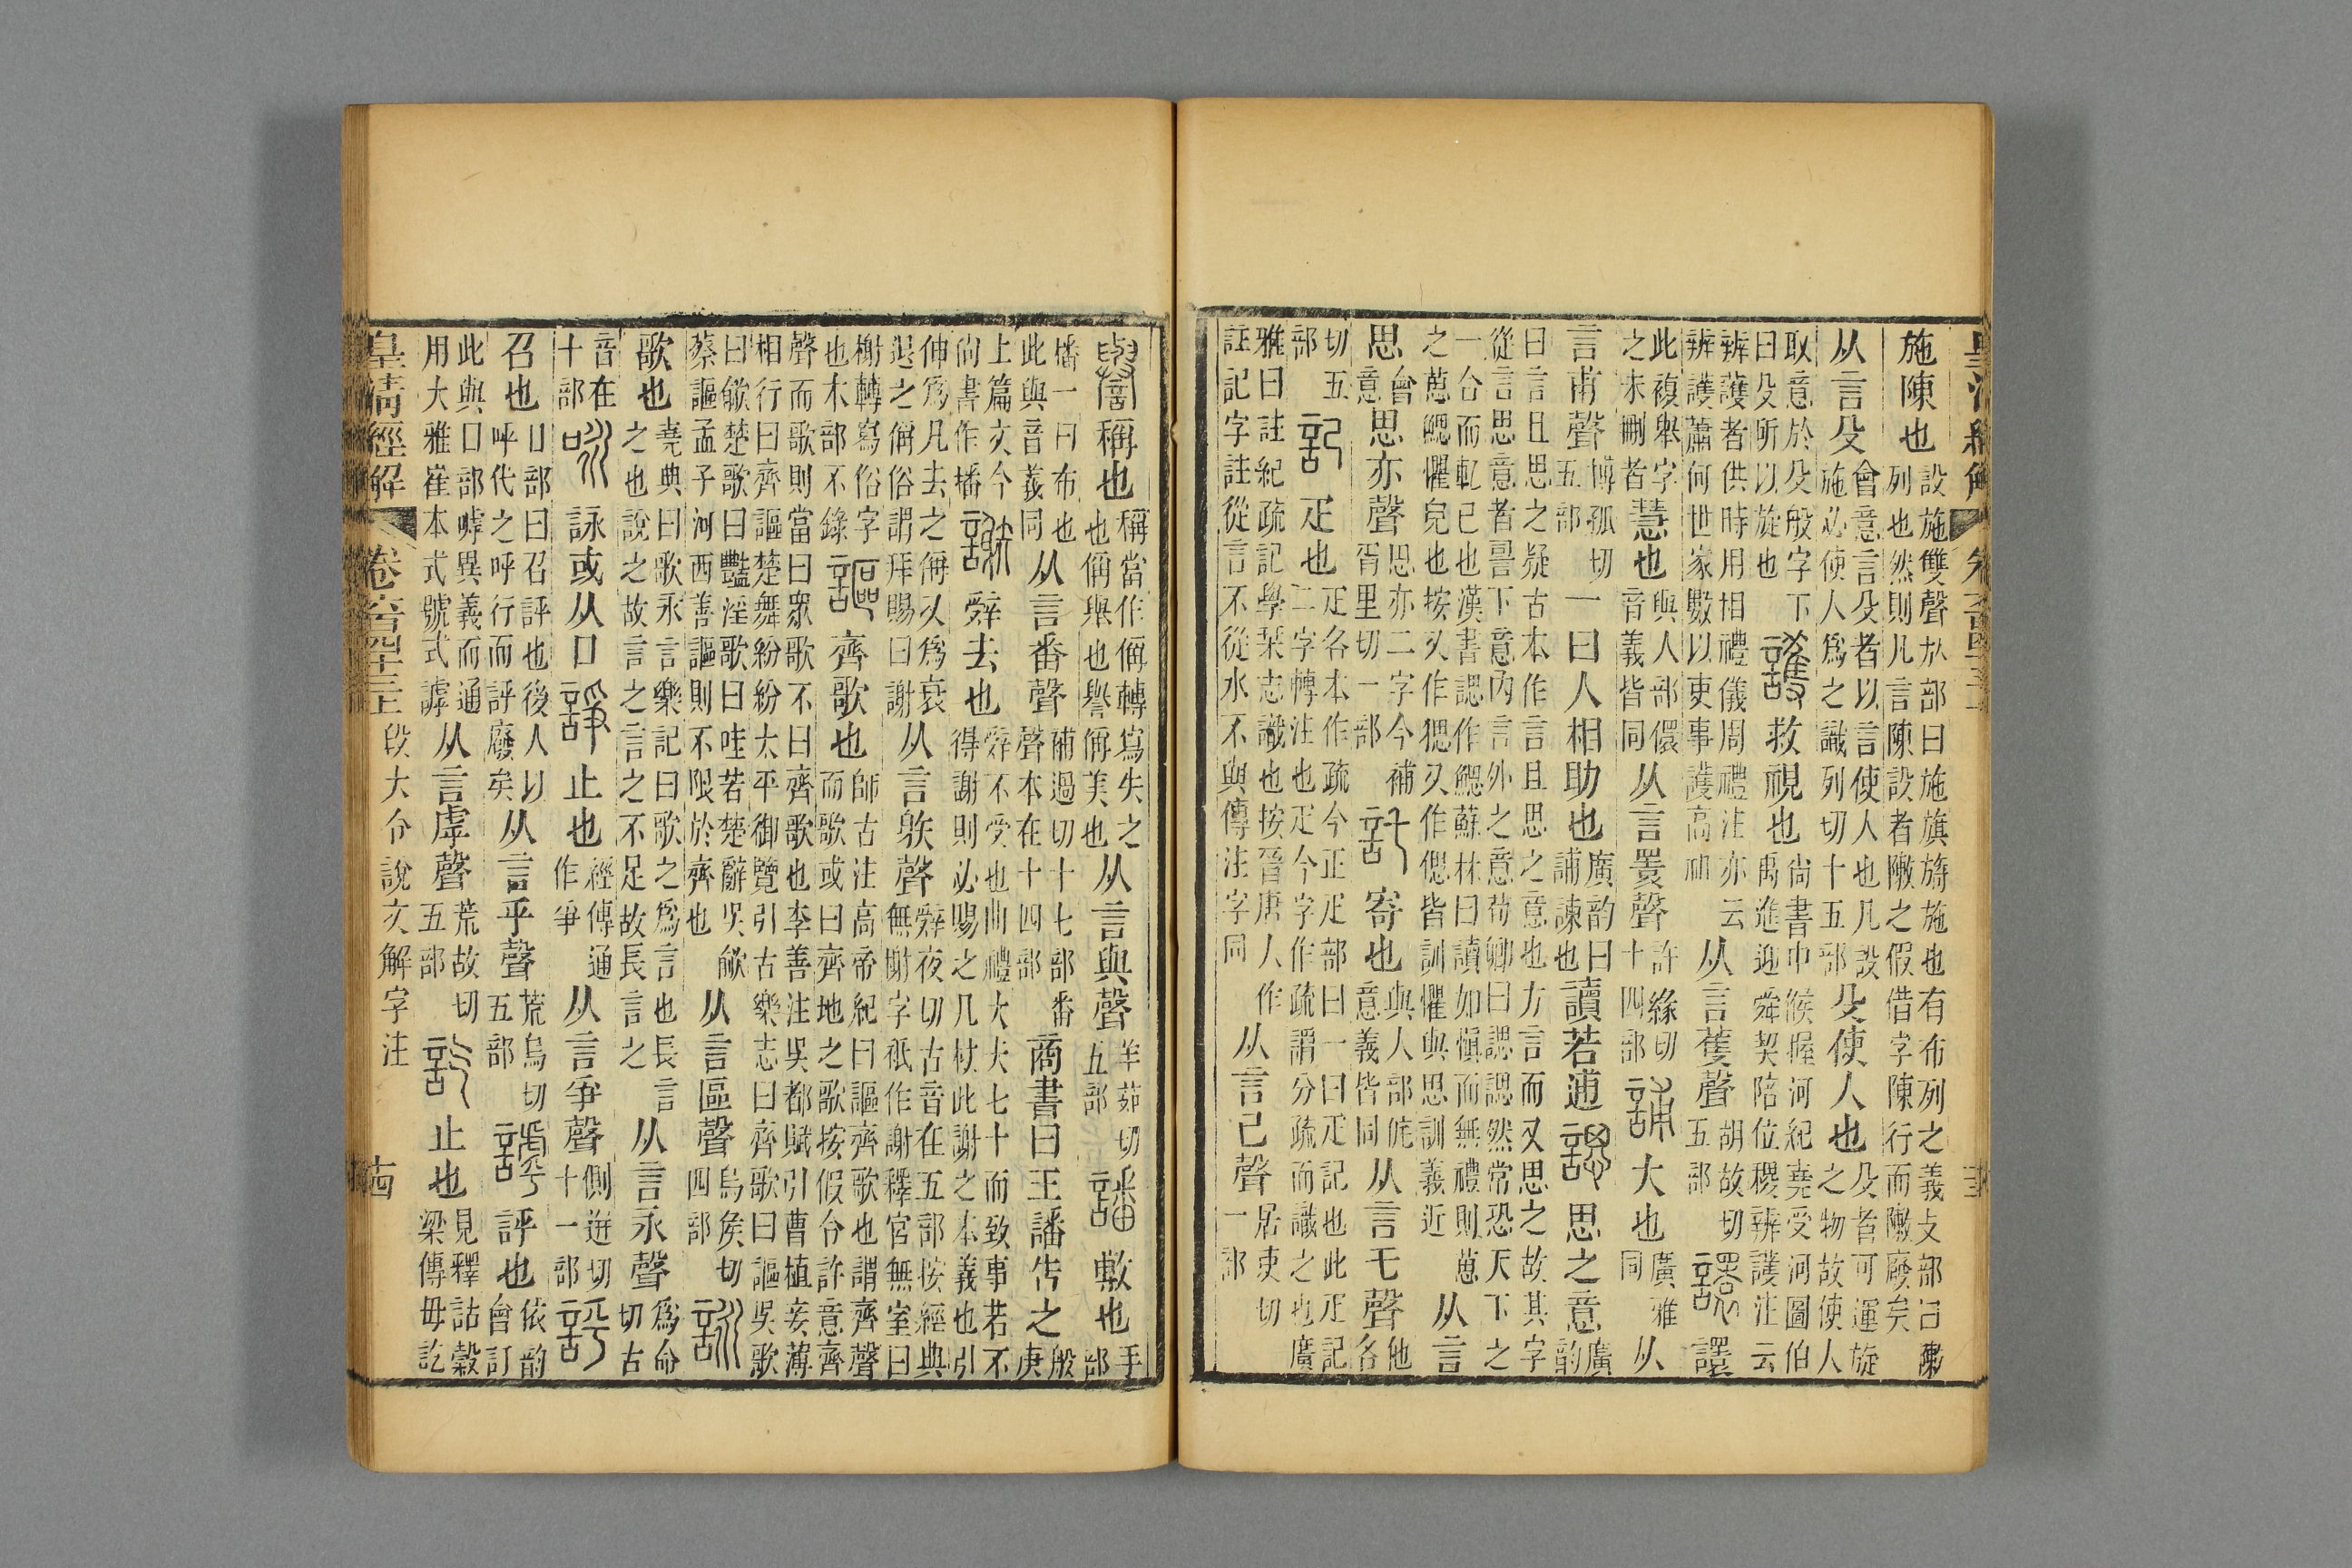 皇清經解 卷六百四十三上 十三
施陳也設施雙聲㫃部曰施旗旖施也有布列之義攴部曰敶列也然則凡言陳設者敶之假借字陳行而敶廢矣
从言殳會意言殳者以言使人也凡設施必使人爲之識列切十五部殳使人也殳者可運旋之物故使人
取意於殳般字下曰殳所以旋也護救視也尚書中候握河紀堯受河圖伯禹進迎舜契陪位稷辨護注云
辨護者供時用相禮儀周禮注亦云辨護蕭何世家數以吏事護高祖从言蒦聲胡故切五部譞譞
此複舉字之未刪者慧也與人部儇音義皆同从言睘聲許緣切十四部誧大也廣雅同从
言甫聲博孤切五部一曰人相助也廣韵曰誧諫也讀若逋諰思之意廣韵
曰言且思之疑古本作言且思之意也方言而又思之故其字從言思意者䛐下意內言外之意荀卿曰諰諰然常恐天下之
一合而軋己也漢書諰作鰓蘇林曰讀如愼而無禮則葸之葸鰓懼皃也按又作㥴又作偲皆訓懼與思訓義近从言
思會意思亦聲思亦二字今補胥里切一部託寄也與人部侂意義皆同从言乇聲他各
切五部記疋也疋各本作疏今正疋部曰一曰疋記也此疋記二字轉注也疋今字作疏謂分疏而識之也廣
雅曰註紀疏記學栞志識也按晉唐人作註記字註從言不從水不與傳注字同从言己聲居吏切一部
譽誧稱也稱當作偁轉寫失之也偁舉也譽偁美也从言與聲羊茹切五部譒敷也手部
播一曰布也此與音義同从言番聲補過切十七部番聲本在十四部商書曰王譒告之般庚
上篇文今尚書作播謝辤去也辤不受也曲禮大夫七十而致事若不得謝則必賜之几杖此謝之本義也引
伸爲凡去之偁又爲衰退之偁俗謂拜賜曰謝从言䠶聲辤夜切古音在五部按經典無榭字祇作謝釋宮無室曰
榭轉寫俗字也木部不錄謳齊歌也師古注高帝紀曰謳齊歌也謂齊聲而歌或曰齊地之歌按假令許意齊
聲而歌則當曰衆歌不曰齊歌也李善注吳都賦引曹植妾薄相行曰齊謳楚舞紛紛太平御覽引古樂志曰齊歌曰謳吳歌
曰歈楚歌曰豔淫歌曰哇若楚辭吳歈蔡謳孟子河西善謳則不限於齊也从言區聲烏矦切四部詠
歌也堯典曰歌永言樂記曰歌之爲言也長言之也說之故言之言之不足故長言之从言永聲爲命切古
音在十部咏詠或从口諍止也經傳通作爭从言爭聲側迸切十一部評
召也口部曰召評也後人以呼代之呼行而評廢矣从言乎聲荒烏切五部謼評也依韵會訂
此與口部嘑異義而通用大雅崔本式號式謼从言虖聲荒故切五部訖止也見釋詁穀梁傳毋訖
皇清經解 卷六百四十三上 段大令說文解字注 十四